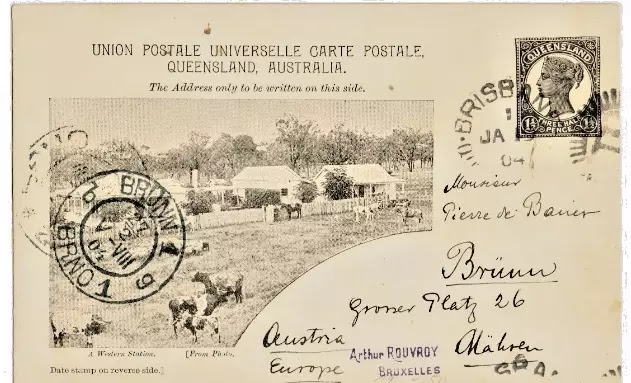 UNION POSTALE UNIVERSELLE CARTE POSTALE,
QUEENSLAND, AUSTRALIA.
The Address only to be written on this side.
QUEENSLAND
1½ 1½
THREE HALF PENCE
BRISBANE
JA
04
Monsieur
Pierre de Bauer
Brünn
Grosser Platz 26
Mähren
Austria
Europe
Arthur ROUVROY
BRUXELLES
BRÜNN 1
BRNO 1
A Western Station. [From Photo.
Date stamp on reverse side.]